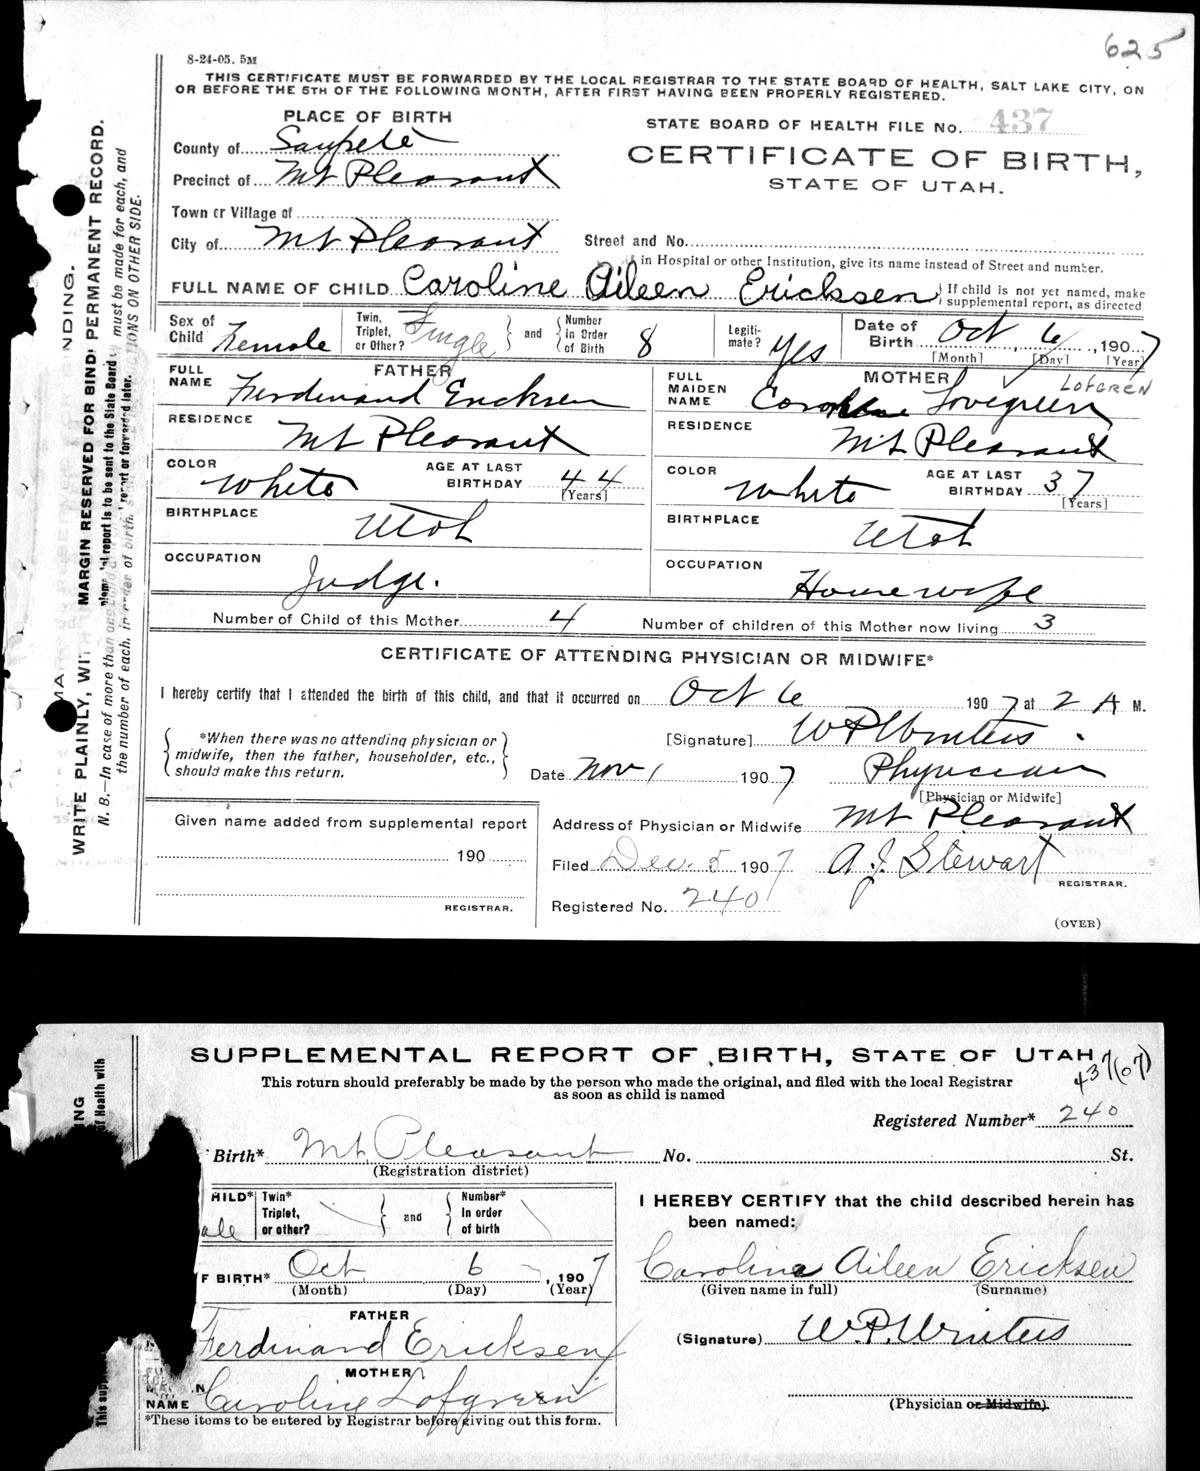 625
8-24-05. 5M
THIS CERTIFICATE MUST BE FORWARDED BY THE LOCAL REGISTRAR TO THE STATE BOARD OF HEALTH, SALT LAKE CITY, ON
OR BEFORE THE 5TH OF THE FOLLOWING MONTH, AFTER FIRST HAVING BEEN PROPERLY REGISTERED.
PLACE OF BIRTH
STATE BOARD OF HEALTH FILE No. 437
County of Sanpete
CERTIFICATE OF BIRTH,
Precinct of Mt Pleasant
STATE OF UTAH.
Town or Village of
City of Mt Pleasant
Street and No.
in Hospital or other Institution, give its name instead of Street and number.
FULL NAME OF CHILD Caroline Aileen Ericksen
If child is not yet named, make
supplemental report, as directed
Sex of Child Female
Twin, Triplet, or Other? Single
and
Number in Order of Birth 8
Legitimate? Yes
Date of Birth Oct 6, 1907
[Month] [Day] [Year]
FATHER
FULL NAME Ferdinand Ericksen
MOTHER
LOFGREN
FULL MAIDEN NAME Caroline Lovegreen
RESIDENCE Mt Pleasant
RESIDENCE Mt Pleasant
COLOR White
AGE AT LAST BIRTHDAY 44
[Years]
COLOR White
AGE AT LAST BIRTHDAY 37
[Years]
BIRTHPLACE Utah
BIRTHPLACE Utah
OCCUPATION Judge.
OCCUPATION Housewife
Number of Child of this Mother 4
Number of children of this Mother now living 3
CERTIFICATE OF ATTENDING PHYSICIAN OR MIDWIFE*
I hereby certify that I attended the birth of this child, and that it occurred on Oct 6 1907 at 2 A M.
*When there was no attending physician or
midwife, then the father, householder, etc.,
should make this return.
[Signature] W P Winters
Date Nov 1 1907 Physician
[Physician or Midwife]
Given name added from supplemental report
190
REGISTRAR.
Address of Physician or Midwife Mt Pleasant
Filed Dec. 5 1907 A. J. Stewart
REGISTRAR.
Registered No. 240
(OVER)
MARGIN RESERVED FOR BINDING.
WRITE PLAINLY, WITH PERMANENT RECORD.
N. B.—In case of more than one must be made for each, and
the number of each, in order of birth,
SUPPLEMENTAL REPORT OF BIRTH, STATE OF UTAH
437(07)
This return should preferably be made by the person who made the original, and filed with the local Registrar
as soon as child is named
Registered Number* 240
Birth* Mt. Pleasant No. St.
(Registration district)
HILD* ale
Twin* Triplet, or other?
and
Number* In order of birth
I HEREBY CERTIFY that the child described herein has
been named:
F BIRTH* Oct 6, 1907
(Month) (Day) (Year)
Caroline Aileen Ericksen
(Given name in full) (Surname)
FATHER
Ferdinand Ericksen
(Signature) W.P. Winters
MOTHER
NAME Caroline Lofgreen
(Physician or Midwife).
*These items to be entered by Registrar before giving out this form.